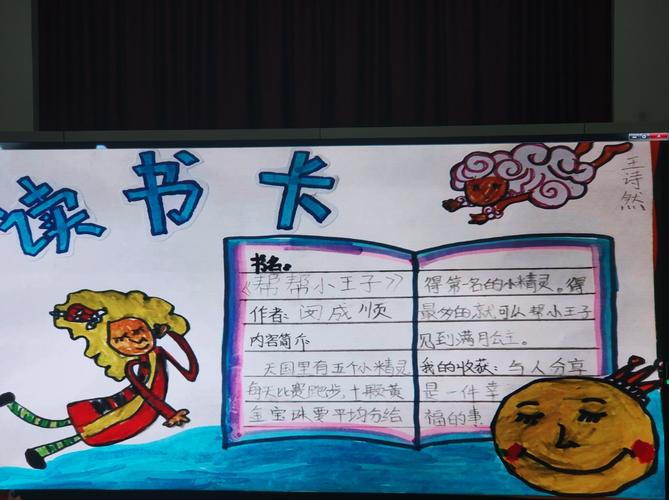 读书卡
王诗然
书名:
《帮帮小王子》
作者: 闵成顺
内容简介
天国里有五个小精灵
每天比赛跑步,十颗黄
金宝珠要平均分给
得第名的小精灵。得
最多的就可以帮小王子
见到满月公主。
我的收获:与人分享
是一件幸
福的事